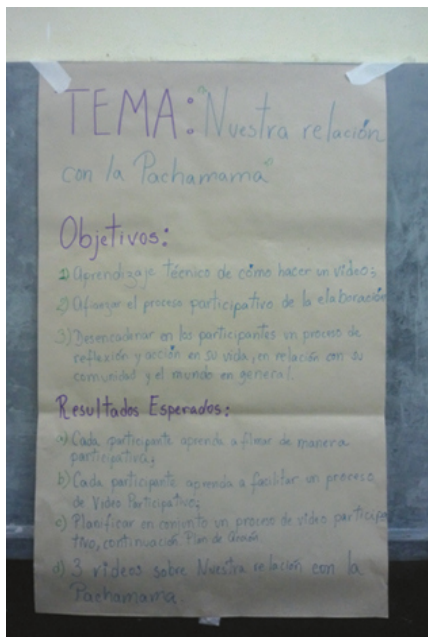 TEMA: "Nuestra relación
con la Pachamama"
Objetivos:
1) Aprendizaje técnico de cómo hacer un video;
2) Afianzar el proceso participativo de la elaboración
3) Desencadenar en los participantes un proceso de
reflexión y acción en su vida, en relación con su
comunidad y el mundo en general.
Resultados Esperados:
a) Cada participante aprenda a filmar de manera
participativa;
b) Cada participante aprenda a facilitar un proceso
de Video Participativo;
c) Planificar en conjunto un proceso de video participa
tivo, continuación Plan de
d) 3 videos sobre Nuestra relación con la
Pachamama.